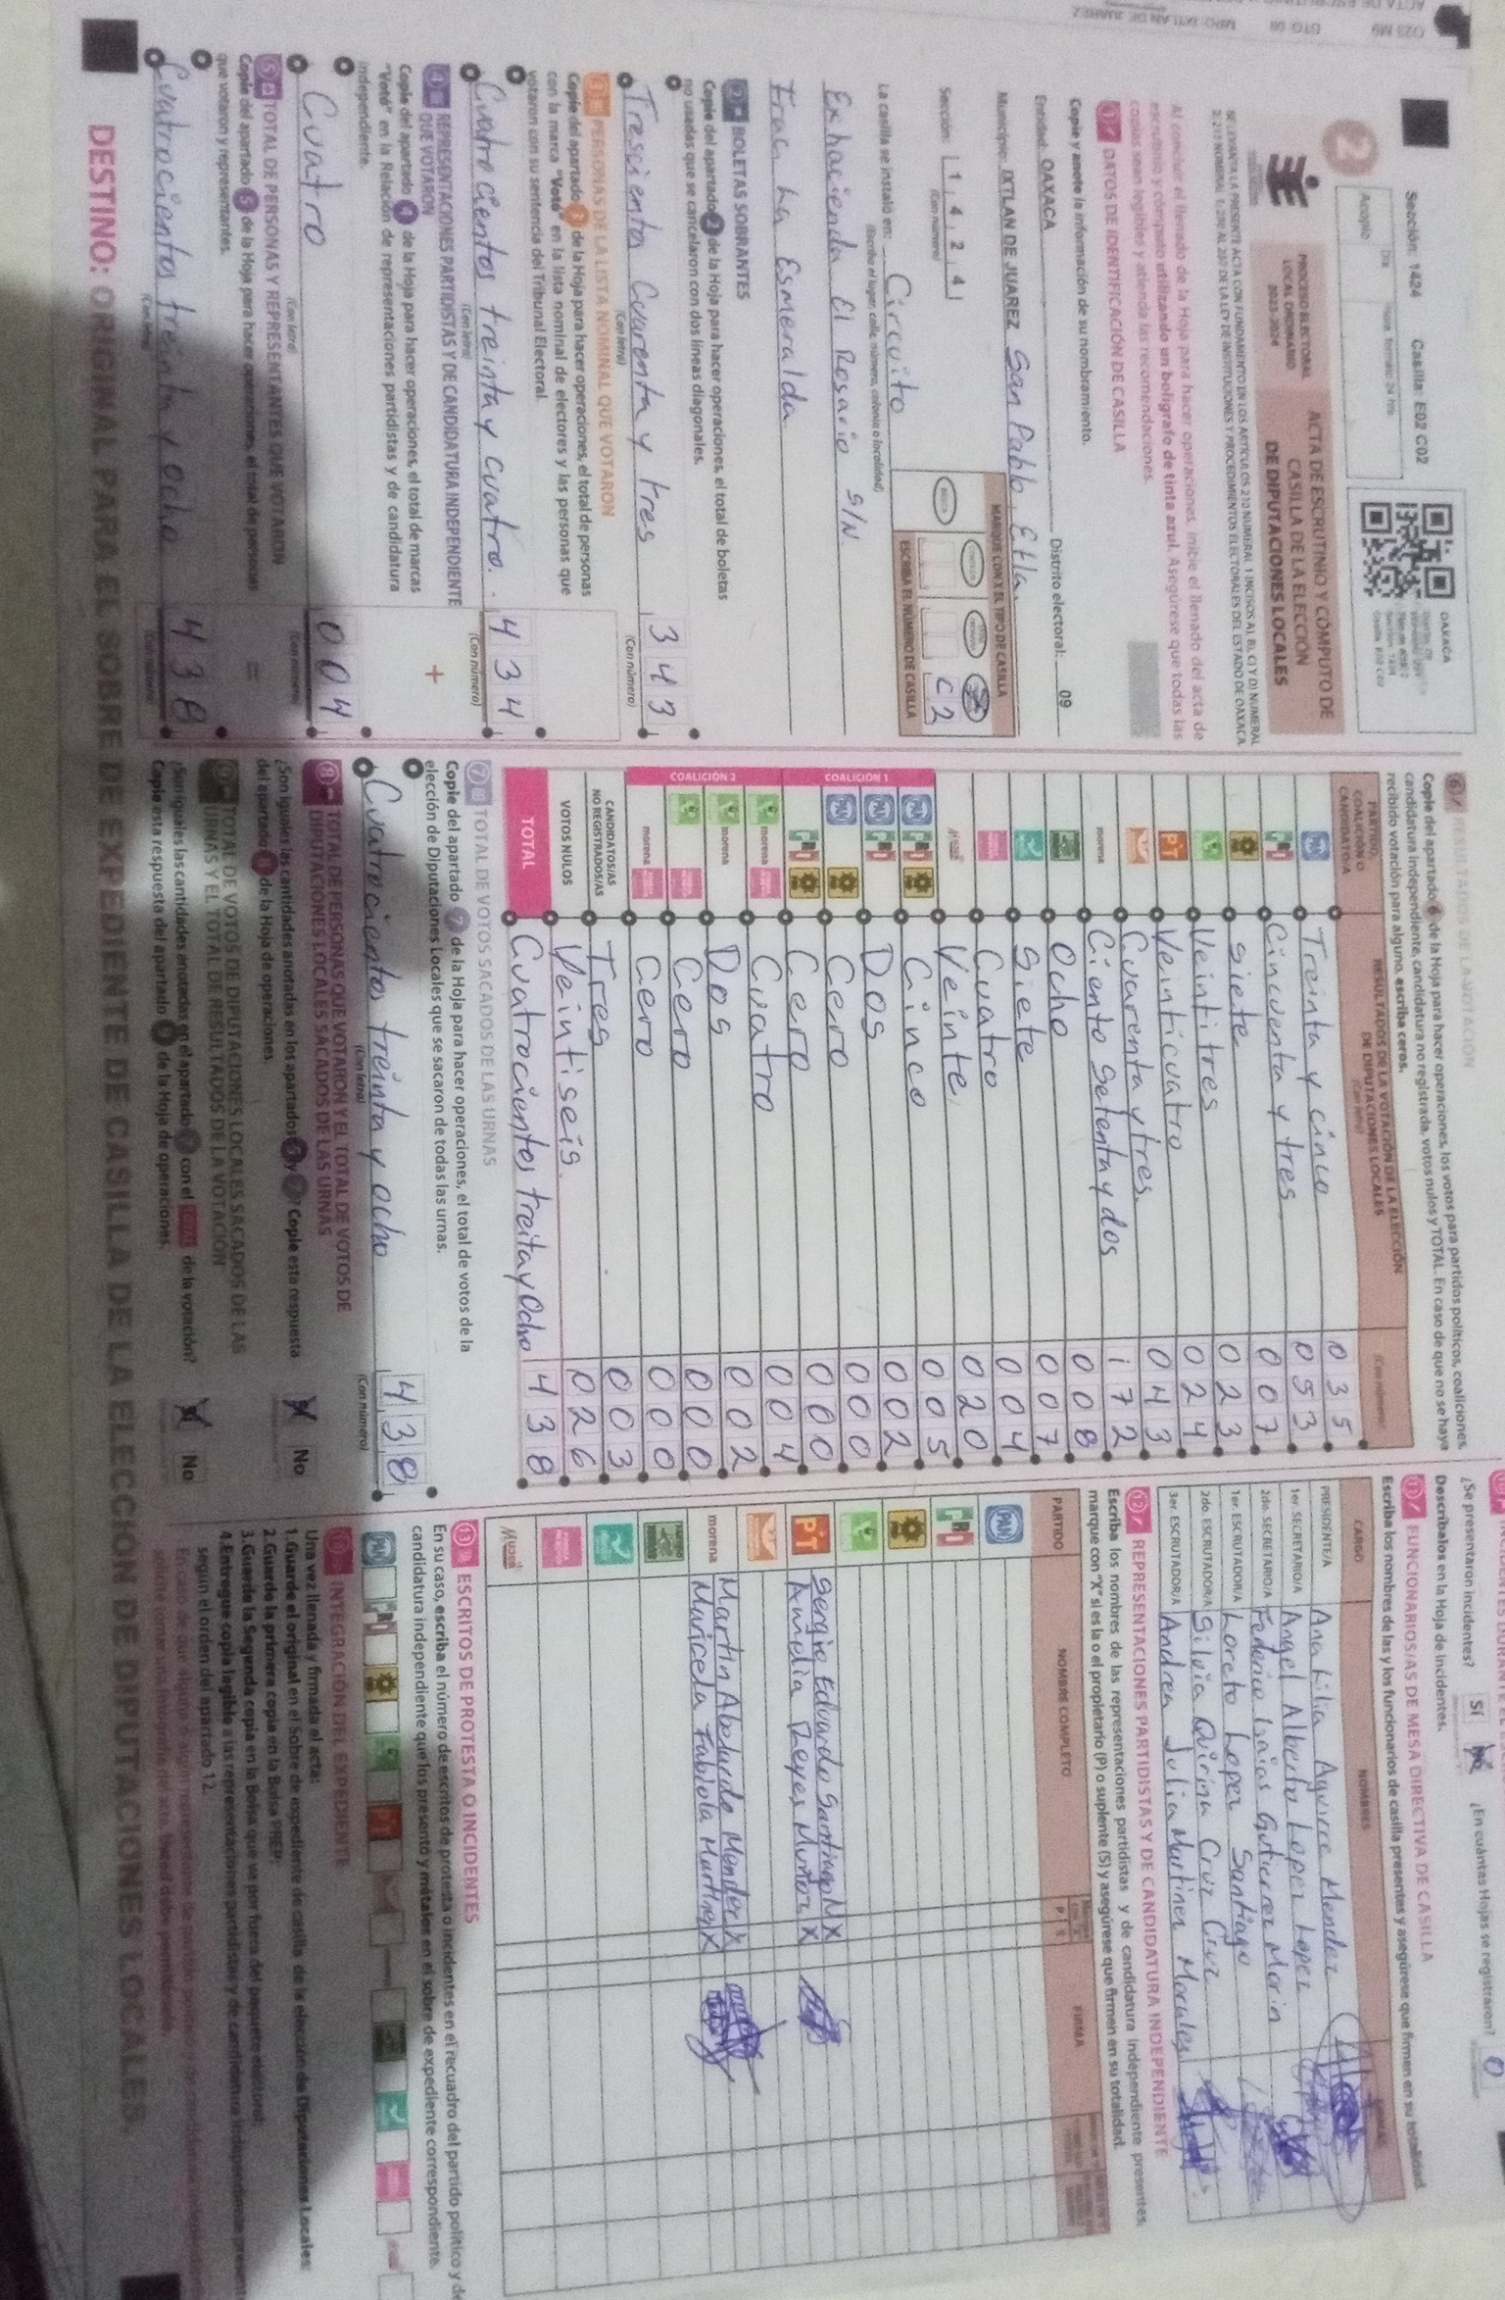 Sección: 1424 Casilla: E02 C02
OAXACA
2
PROCESO ELECTORAL
LOCAL ORDINARIO
2023-2024
ACTA DE ESCRUTINIO Y CÓMPUTO DE
CASILLA DE LA ELECCIÓN
DE DIPUTACIONES LOCALES
Al concluir el llenado de la Hoja para hacer operaciones, inicie el llenado del acta de
escrutinio y cómputo utilizando un bolígrafo de tinta azul. Asegúrese que todas las
copias sean legibles y atienda las recomendaciones.
1 DATOS DE IDENTIFICACIÓN DE CASILLA
Copie y anote la información de su nombramiento.
Entidad: OAXACA Distrito electoral: 09
Municipio: IXTLAN DE JUAREZ San Pablo Etla
Sección: 1 4 2 4
(Con número)
MARQUE CON X EL TIPO DE CASILLA
ESCRIBA EL NÚMERO DE CASILLA
C2
La casilla se instaló en: Circuito
(Escriba el lugar: calle, número, colonia o localidad)
Exhacienda El Rosario S/N
Frac. La Esmeralda
2 BOLETAS SOBRANTES
Copie del apartado 2 de la Hoja para hacer operaciones, el total de boletas
no usadas que se cancelaron con dos líneas diagonales.
Trescientos Cuarenta y tres 343
(Con letra) (Con número)
3 PERSONAS DE LA LISTA NOMINAL QUE VOTARON
Copie del apartado 3 de la Hoja para hacer operaciones, el total de personas
con la marca "Votó" en la lista nominal de electores y las personas que
votaron con su sentencia del Tribunal Electoral.
Cuatrocientos treinta y cuatro. 434
(Con letra) (Con número)
4 REPRESENTACIONES PARTIDISTAS Y DE CANDIDATURA INDEPENDIENTE
QUE VOTARON
Copie del apartado 4 de la Hoja para hacer operaciones, el total de marcas
"Votó" en la Relación de representaciones partidistas y de candidatura
independiente.
+
Cuatro 004
(Con letra) (Con número)
5 TOTAL DE PERSONAS Y REPRESENTANTES QUE VOTARON
Copie del apartado 5 de la Hoja para hacer operaciones, el total de personas
que votaron y representantes.
=
Cuatrocientos treinta y ocho 438
6 RESULTADOS DE LA VOTACIÓN
Copie del apartado 6 de la Hoja para hacer operaciones, los votos para partidos políticos, coaliciones,
candidatura independiente, candidatura no registrada, votos nulos y TOTAL. En caso de que no se haya
recibido votación para alguno, escriba ceros.
PARTIDO,
COALICIÓN O
CANDIDATO/A
RESULTADOS DE LA VOTACIÓN DE LA ELECCIÓN
DE DIPUTACIONES LOCALES
PAN Treinta y cinco 035
PRI Cincuenta y tres 053
siete 007
Veintitres 023
PT Veinticuatro 024
Cuarenta y tres 043
morena Ciento Setenta y dos 172
Ocho 008
Siete 007
Cuatro 004
Veinte 020
COALICIÓN 1
PAN PRI Cinco 005
PAN PRI Dos 002
PAN Cero 000
PRI Cero 000
COALICIÓN 2
morena Cuatro 004
morena Dos 002
Cero 000
morena Cero 000
CANDIDATOS/AS
NO REGISTRADOS/AS Tres 003
VOTOS NULOS Veintiseis 026
TOTAL Cuatrocientos treita y Ocho 438
7 TOTAL DE VOTOS SACADOS DE LAS URNAS
Copie del apartado 7 de la Hoja para hacer operaciones, el total de votos de la
elección de Diputaciones Locales que se sacaron de todas las urnas.
Cuatrocientos treinta y ocho 438
(Con letra) (Con número)
8 TOTAL DE PERSONAS QUE VOTARON Y EL TOTAL DE VOTOS DE
DIPUTACIONES LOCALES SACADOS DE LAS URNAS
¿Son iguales las cantidades anotadas en los apartados 5 y 7? Copie esta respuesta
del apartado 8 de la Hoja de operaciones.
No
9 TOTAL DE VOTOS DE DIPUTACIONES LOCALES SACADOS DE LAS
URNAS Y EL TOTAL DE RESULTADOS DE LA VOTACIÓN
¿Son iguales las cantidades anotadas en el apartado 7 con el TOTAL de la votación?
Copie esta respuesta del apartado 9 de la Hoja de operaciones.
No
¿Se presentaron incidentes? Sí ¿En cuántas Hojas se registraron? 0
Descríbalos en la Hoja de incidentes.
11 FUNCIONARIOS/AS DE MESA DIRECTIVA DE CASILLA
Escriba los nombres de las y los funcionarios de casilla presentes y asegúrese que firmen en su totalidad.
CARGO NOMBRES
PRESIDENTE/A Ana Lilia Aguirre Mendez
1er. SECRETARIO/A Angel Alberto Lopez Lopez
2do. SECRETARIO/A Federico Isaias Gutierrez Marin
1er. ESCRUTADOR/A Loreto Lopez Santiago
2do. ESCRUTADOR/A Silvia Quirina Cruz Cruz
3er. ESCRUTADOR/A Andrea Julia Martinez Morales
12 REPRESENTACIONES PARTIDISTAS Y DE CANDIDATURA INDEPENDIENTE
Escriba los nombres de las representaciones partidistas y de candidatura independiente presentes,
marque con "X" si es la o el propietario (P) o suplente (S) y asegúrese que firmen en su totalidad.
PARTIDO NOMBRE COMPLETO FIRMA
PAN
PRI
PT Sergio Eduardo Santiago X
Amelia Reyes Muñoz X
morena Martin Abelardo Mendez X
Maricela Fabiola Martinez X
13 ESCRITOS DE PROTESTA O INCIDENTES
En su caso, escriba el número de escritos de protesta o incidentes en el recuadro del partido político y de
candidatura independiente que los presentó y métalos en el sobre de expediente correspondiente.
INTEGRACIÓN DEL EXPEDIENTE
Una vez llenada y firmada el acta:
1. Guarde el original en el Sobre de expediente de casilla de la elección de Diputaciones Locales.
2. Guarde la primera copia en la Bolsa PREP.
3. Guarde la Segunda copia en la Bolsa que va por fuera del paquete electoral.
4. Entregue copia legible a las representaciones partidistas y de candidatura independiente
según el orden del apartado 12.
DESTINO: ORIGINAL PARA EL SOBRE DE EXPEDIENTE DE CASILLA DE LA ELECCIÓN DE DIPUTACIONES LOCALES.